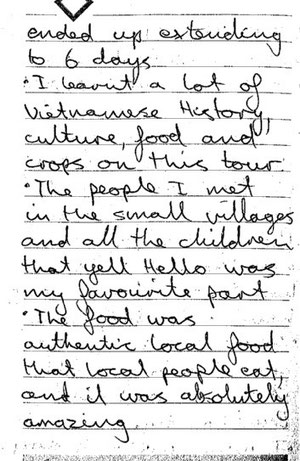 ended up extending
to 6 days
• I learnt a lot of
Vietnamese History,
culture, food and
crops on this tour.
• The people I met
in the small villages
and all the children
that yell Hello was
my favourite part
• The food was
authentic local food
that local people eat,
and it was absolutely
amazing.